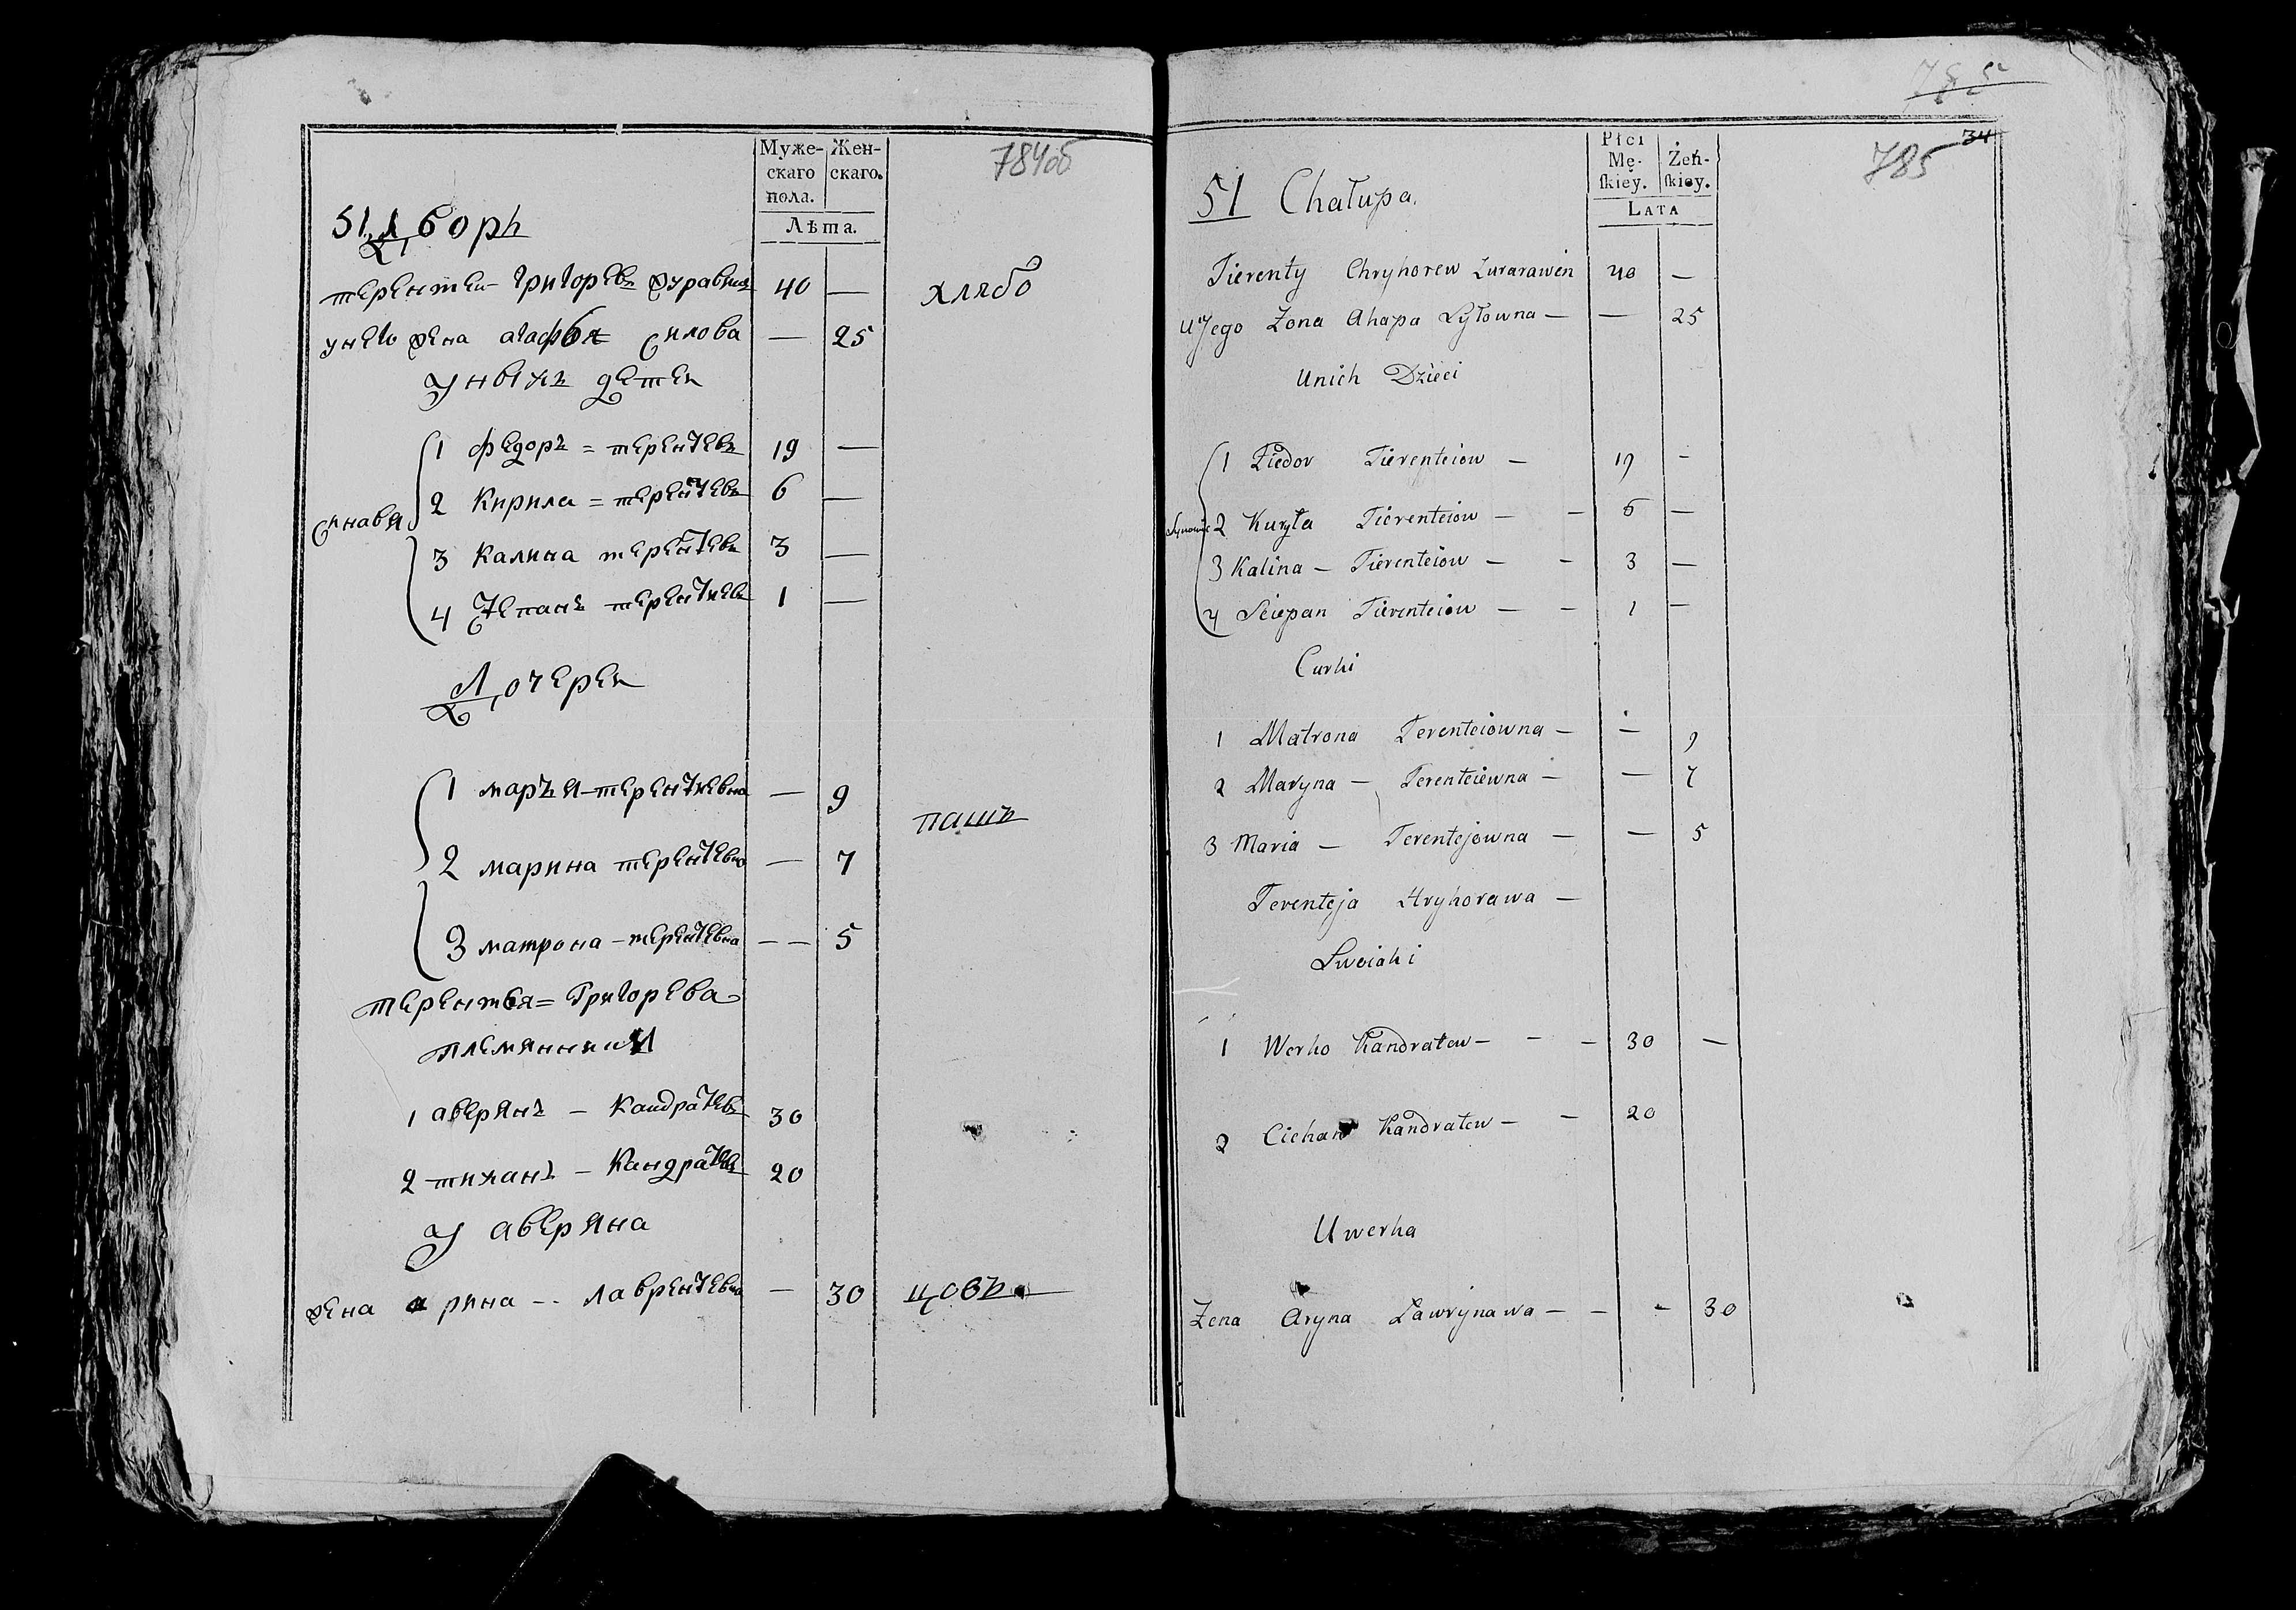 Муже-
скаго
пола.
Жен-
скаго.
Лѣта.
784об
51 Дворъ
терентеи григоревъ журавки 40 —
хлябо
унего жена агафья силова — 25
уныхъ детеи
сынавя
1 федоръ = терентевъ 19 —
2 Кирила = терентевъ 6 —
3 Калина терентевъ 3 —
4 степанъ терентиевъ 1 —
Дочереи
1 маръя – терентиевна — 9
пашъ
2 марина терентевна — 7
3 матрона – терентевна — — 5
терентея = Григорева
племянники
1 аверянъ – Кандратевъ 30
2 тиханъ – Кандратевъ 20
У аверяна
жена арина -- лаврентевна — 30
цовъ
785
34
785
Płci
Mę-
ſkiey.
Żeń-
ſkiey.
Lata
51 Chałupa.
Tierenty Chryhorew Zurarawen 40 —
U Jego Zona Ahapa Syłowna — — 25
Unich Dzieci
Synowie
1 Fiedor Tierenteiow — 19 -
2 Kuryła Tierenteiow — — 6 —
3 Kalina — Tierenteiow — — 3 —
4 Sciepan Tierenteiow — — 1 —
Curki
1 Matrona Terenteiowna — — 9
2 Maryna — Terenteiewna — — 7
3 Maria — Terentejowna — — 5
Terenteja Hryhorawa —
Swoiaki
1 Werko Kandratew — — — 30 —
2 Ciehan Kandratew — — 20
U werka
Zena Aryna Lawrynawa — — - 30